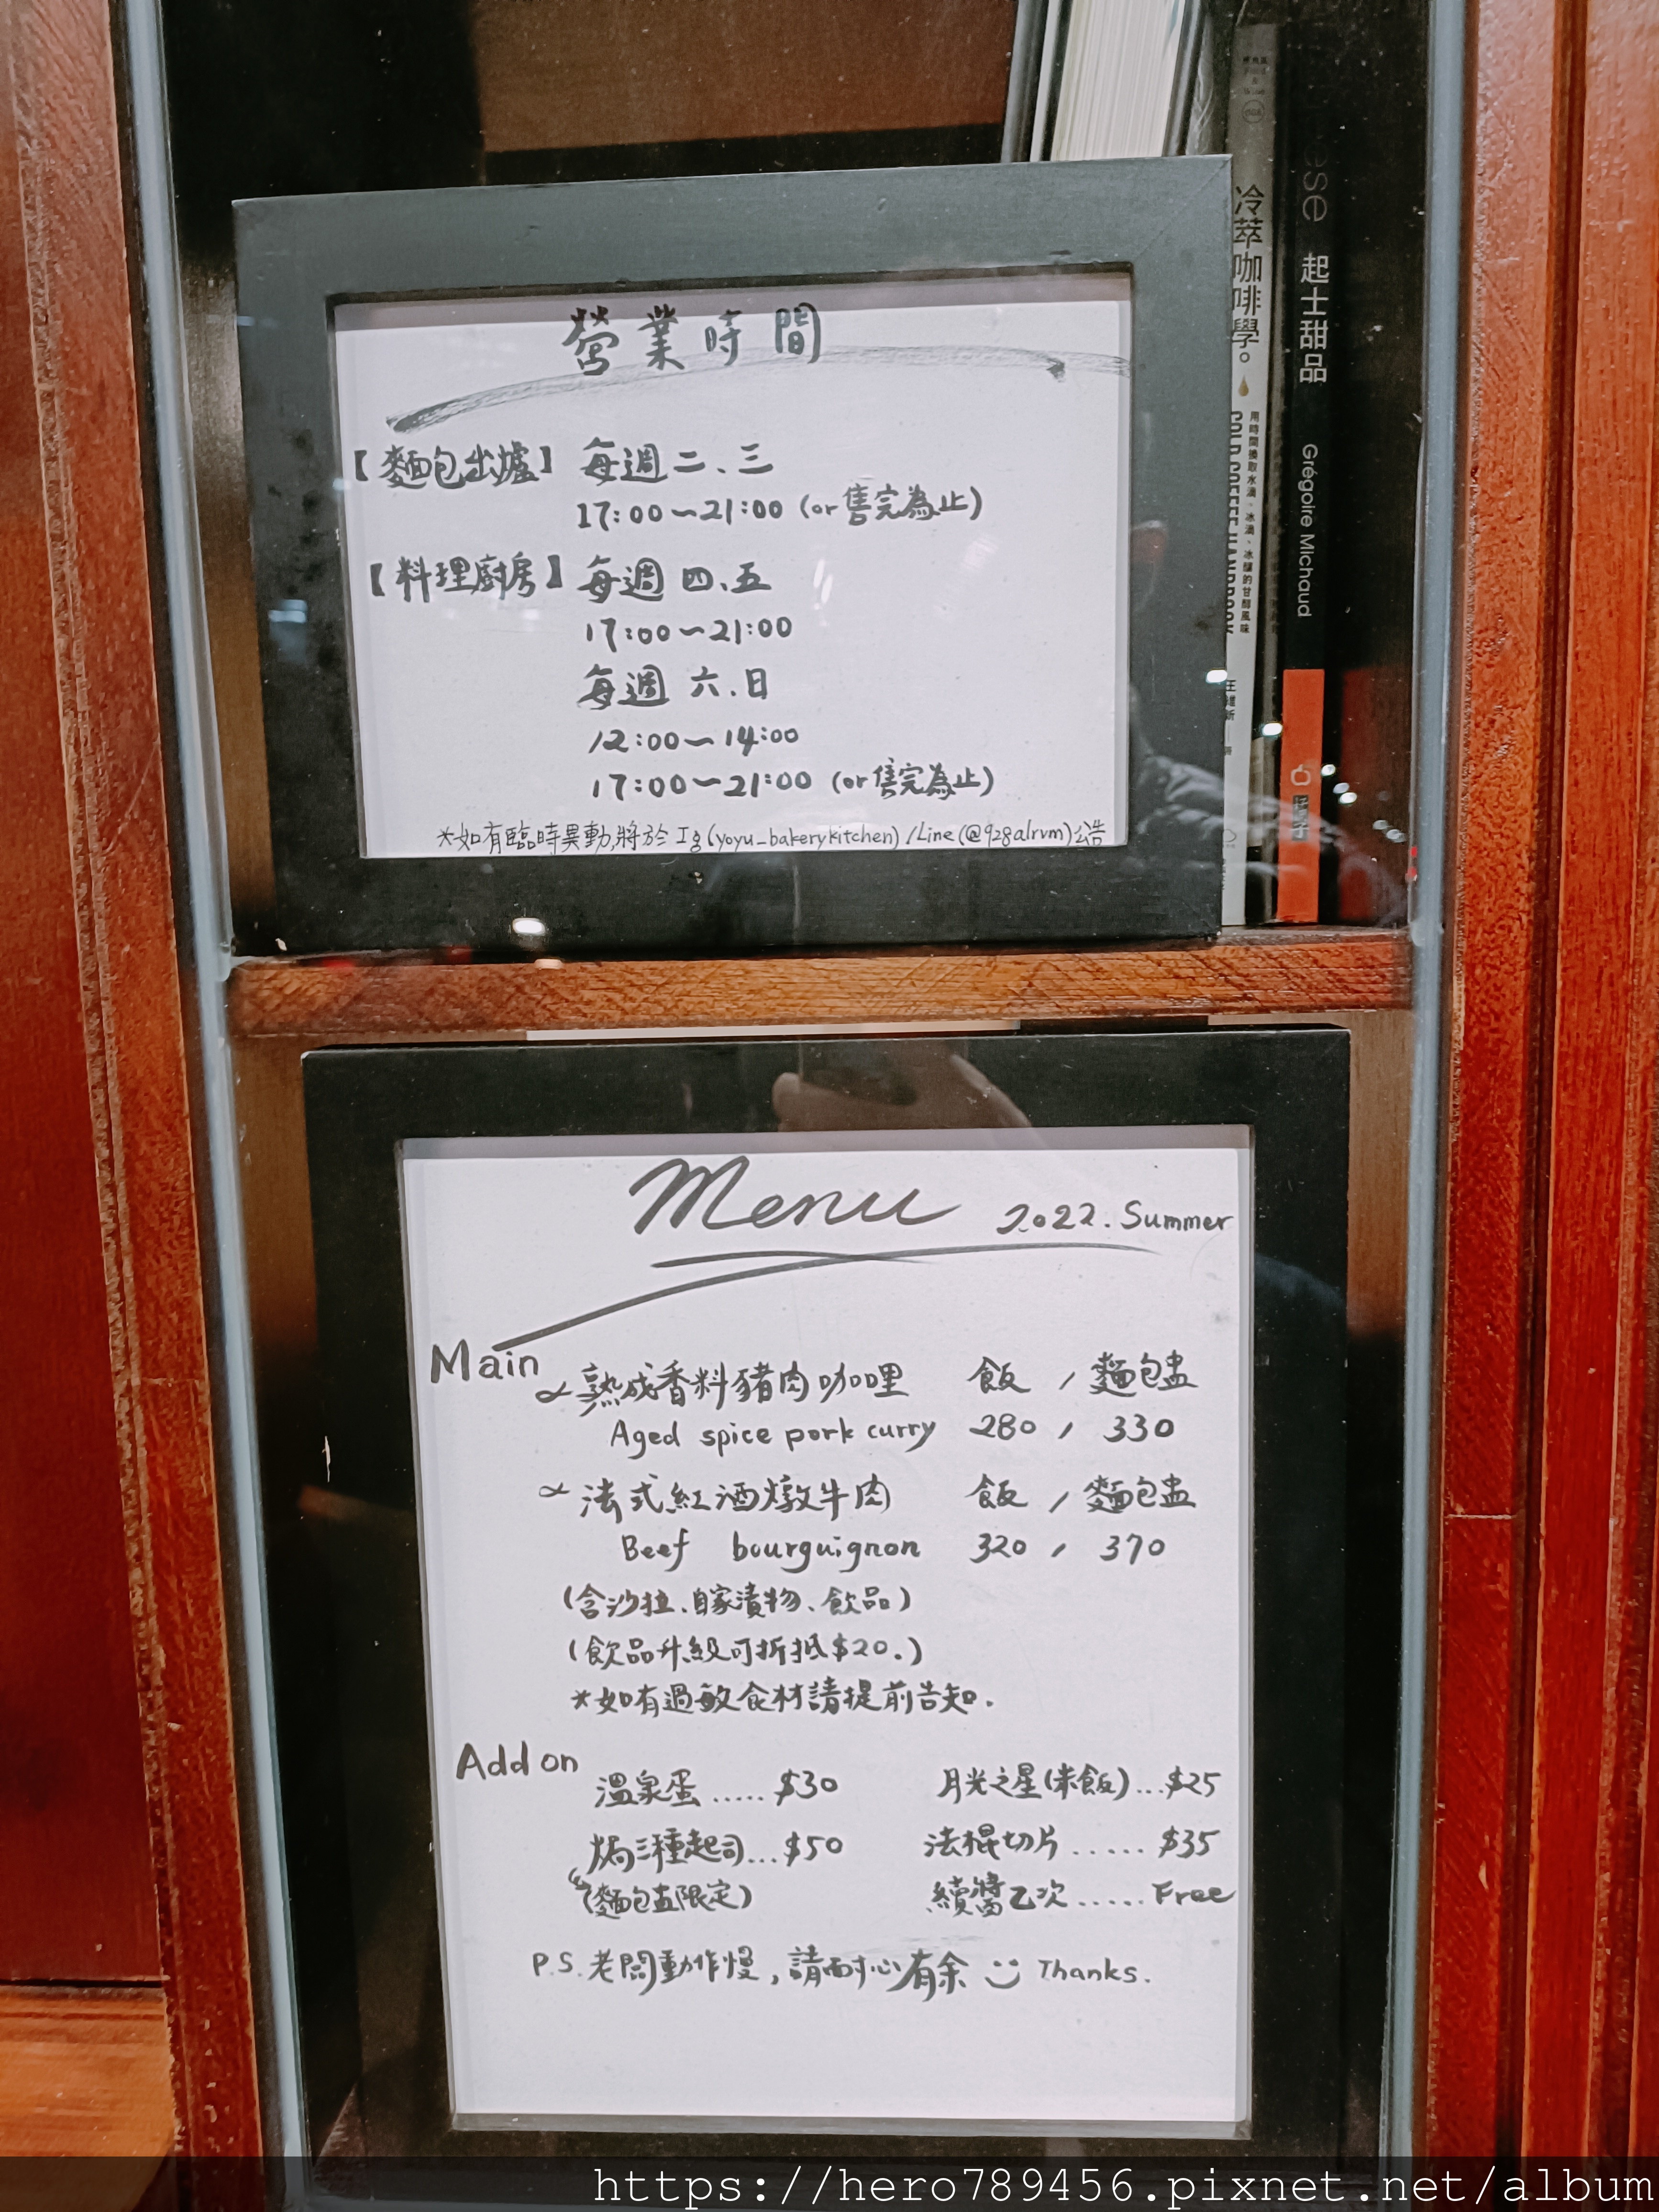 營業時間
【麵包出爐】每週二、三
17:00～21:00 (or售完為止)
【料理廚房】每週四、五
17:00～21:00
每週六、日
12:00～14:00
17:00～21:00 (or售完為止)
*如有臨時異動,將於Ig(yoyu_bakerykitchen)/Line(@928alrvm)公告
冷萃咖啡學。
用時間換取水滴、冰滴、冰釀的甘醇風味
COLD COFFEE HANDBOOK
起士甜品
Grégoire Michaud
Menu 2022. Summer
Main
熟成香料豬肉咖哩 飯 / 麵包盅
Aged spice pork curry 280 / 330
法式紅酒燉牛肉 飯 / 麵包盅
Beef bourguignon 320 / 370
(含沙拉、自家漬物、飲品)
(飲品升級可折抵$20.)
*如有過敏食材請提前告知.
Add on
溫泉蛋.....$30 月光之星(米飯)...$25
焗三種起司...$50 法棍切片.....$35
(麵包盅限定) 續醬乙次.....Free
P.S.老闆動作慢,請耐心有余 Thanks.
https://hero789456.pixnet.net/album